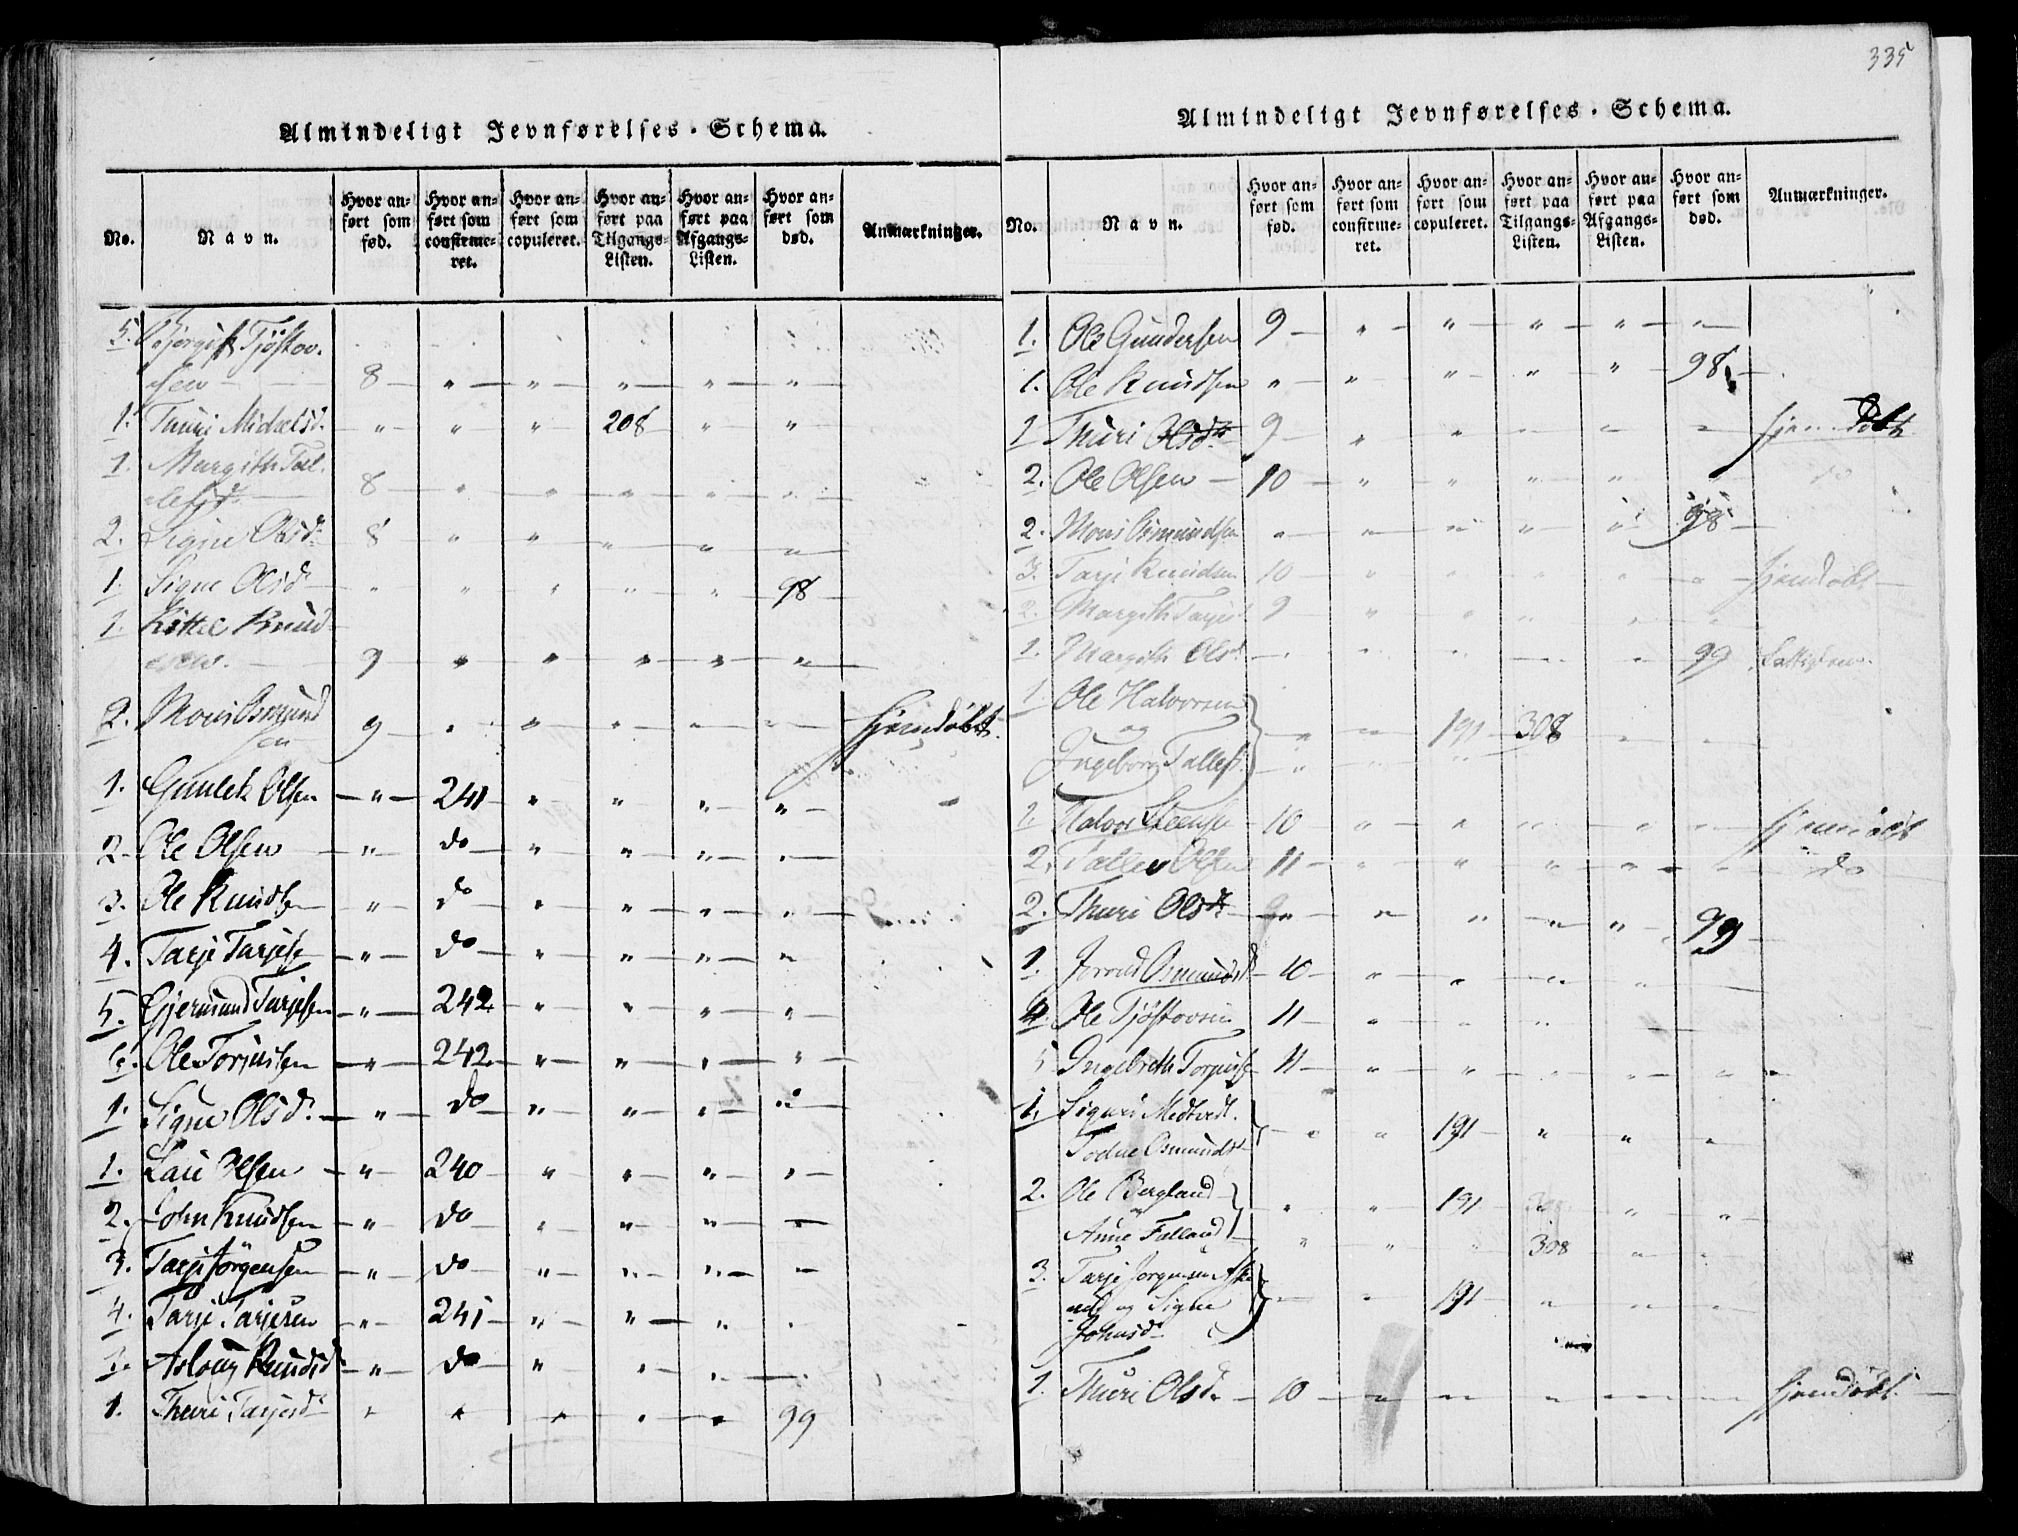 335
Almindeligt Jevnførelses-Schema.
No. Navn. Hvor anført som fød. Hvor anført som confirmeret. Hvor anført som copuleret. Hvor anført paa Tilgangs-Listen. Hvor anført paa Afgangs-Listen. Hvor anført som død. Anmærkninger.
5. Tjøstov-
sen 8 " " " " "
1. Thuri Michelsd. " " " 208 " "
1. Margith Tal-
lefsd. 8 " " " " "
2. Signe Olsd. 8 " " " " "
1. Signe Olsd " " " " " 98
1. Kittel Knud-
sen. 9 " " " " "
2. Mons Osmund
sen 9 " " " " " hjemdøbt.
1. Gunlek Olsen " 241 " " " "
2. Ole Olsen " do " " " "
3. Ole Knudsen " do " " " "
4. Tarje Tarjese " do " " " "
5. Gjermund Tarjesen " 242 " " " "
6. Ole Torjusen " 242 " " " "
1. Signe Olsd. " do " " " "
1. Lau Olsen " 240 " " " "
2. John Knudsen " do " " " "
3. Tarje Jørgensen " do " " " "
4. Tarje Tarjesen " 241 " " " "
1. Asloug Knudsd " do " " " "
1. Thuri Tarjesd " " " " " 99
Almindeligt Jevnførelses-Schema.
No. Navn. Hvor anført som fød. Hvor anført som confirmeret. Hvor anført som copuleret. Hvor anført paa Tilgangs-Listen. Hvor anført paa Afgangs-Listen. Hvor anført som død. Anmærkninger.
1. Ole Gundersen 9 " " " " "
1. Ole Knudsen " " " " " 98
1 Thuri Olsdr 9 " " " " " hjemdøbt
2. Ole Olsen 10 " " " " " do
2. Mons Osmundsen " " " " " 98
3. Tarje Knudsen 10 " " " " " hjemdøbt
2. Margith Tarjesd 9 " " " " "
1. Margith Olsd " " " " " 99
1. Ole Halvorsen
og " " 191 308 " "
Ingeborg Tallefsd. " " "
1. Halvor Steense 10 " " " " " hjemdøbt
2. Tallev Olsen 11 " " " " " do
2. Thuri Olsdr " " " " " 99
1. Jorond Osmundsd 10 " " " "
4. Ole Tjøstovsen 11 " " "
5 Ingebreth Torjusse 11 " " " " "
1. Sigurd Medtvedt.
Todne Osmundsd " " 191 " " "
2. Ole Bergland
og " " 191 " "
Anne Falland " " " 308 "
3. Tarje Jorgensen
og Signe " " 191 " " "
Johnsd
1. Thuri Olsd. 10 " " " " " hjemdøbt